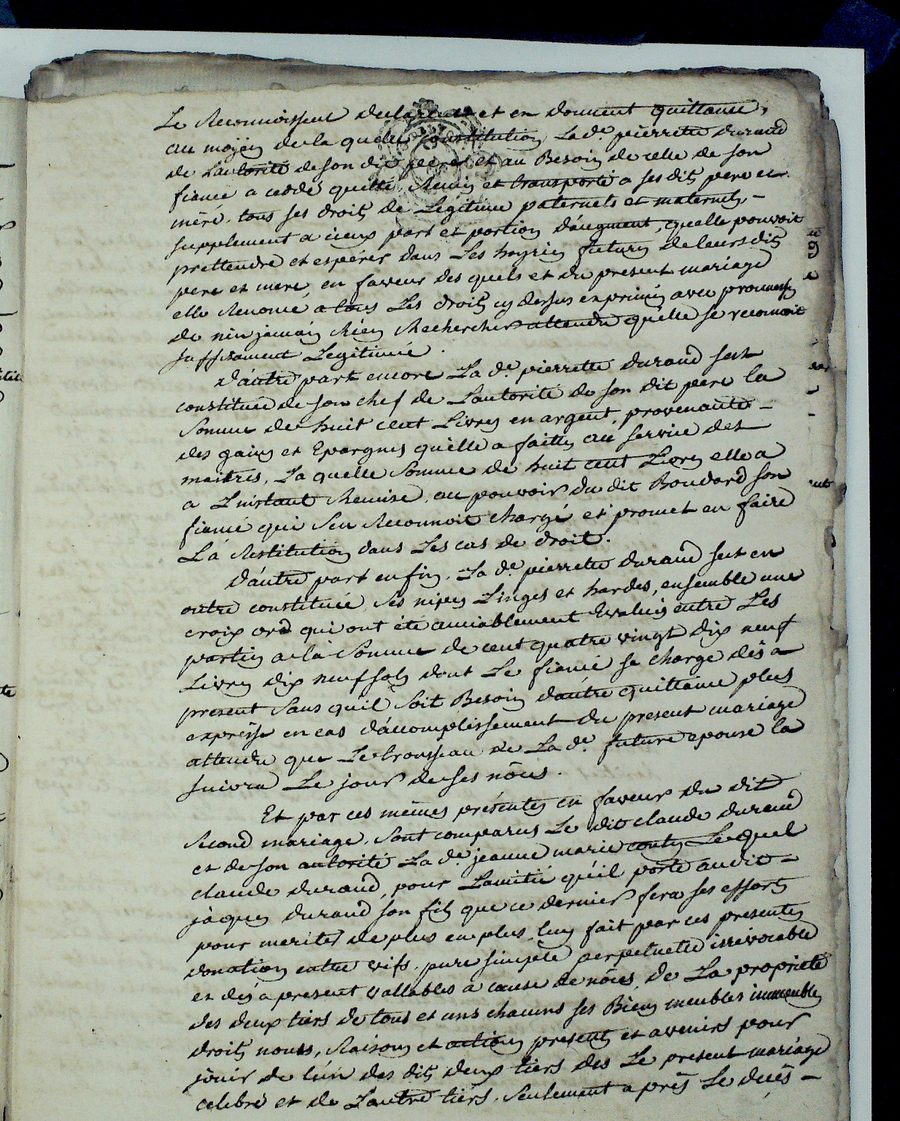 Le Reconnoissent declarent et en donnent quittance,
au moyen de la quelle constitution, La de. pierrette durand
de Lautorité de son dit pere et au Besoin de celle de son
fiancé a cedde quitté, Remis et transporté a ses dits pere et
mère, tous ses droits de Legitime paternels et maternels,
supplement a iceux part et portion d'augment, quelle pouvoit
prettendre et espérer dans Les hoyries futures de leursdits
pere et mere, en faveur des quels et du present mariage
elle Renonce a tous Les droits cy dessus exprimés avec promesse
de nin jamais Rien Rechercher attendu quelle se reconnoit
suffisament Legitimée.
D'autre part encore La de. pierrette durand sest
constituée de son chef de Lautorité de son dit pere la
Somme de huit cent Livres en argent, provenante
des gains et Epargnes qu'elle a faitte au service des
maitres, La quelle Somme de huit cent Livres elle a
a L'instant Remise, au pouvoir du dit Boudard son
fiancé qui s'en Reconnoit chargé et promet en faire
La Restitution dans Les cas de droit.
D'autre part enfin, La de. pierrette durand sest en
outre constituée, ses nipes Linges et hardes, ensemble une
croix ord qui ont été amiablement Evalués entre Les
parties a la Somme de cent quatre vingt dix neuf
Livres dix neuf sols dont Le fiancé se charge dès a
present sans quil soit Besoin d'autre quittance plus
expresse en cas d'acomplissement du present mariage
attendu que Le trousseau de La de. future epouse la
suivra Le jour de ses nôces.
Et par ces mêmes présentes en faveur du dit
Second mariage, sont comparus Le dit claude durand
et de son autorité La de. jeanne marie Lequel
claude durand, pour Lamitié qu'il porte audit
jacques durand son fils que ce dernier fera ses efforts
pour meriter de plus en plus, luy fait par ces presentes
donation entre vifs, pure simple perpetuelle irrévocable
et dès a present vallables a cause de nôces, de La proprieté
des deux tiers de tous et uns chacuns ses Biens meubles immeubles
droits noms, Raisons et actions presents et avenirs pour
jouir de l'un des dits deux tiers dès Le present mariage
celebré et de Lautre tiers, seulement après Le decès